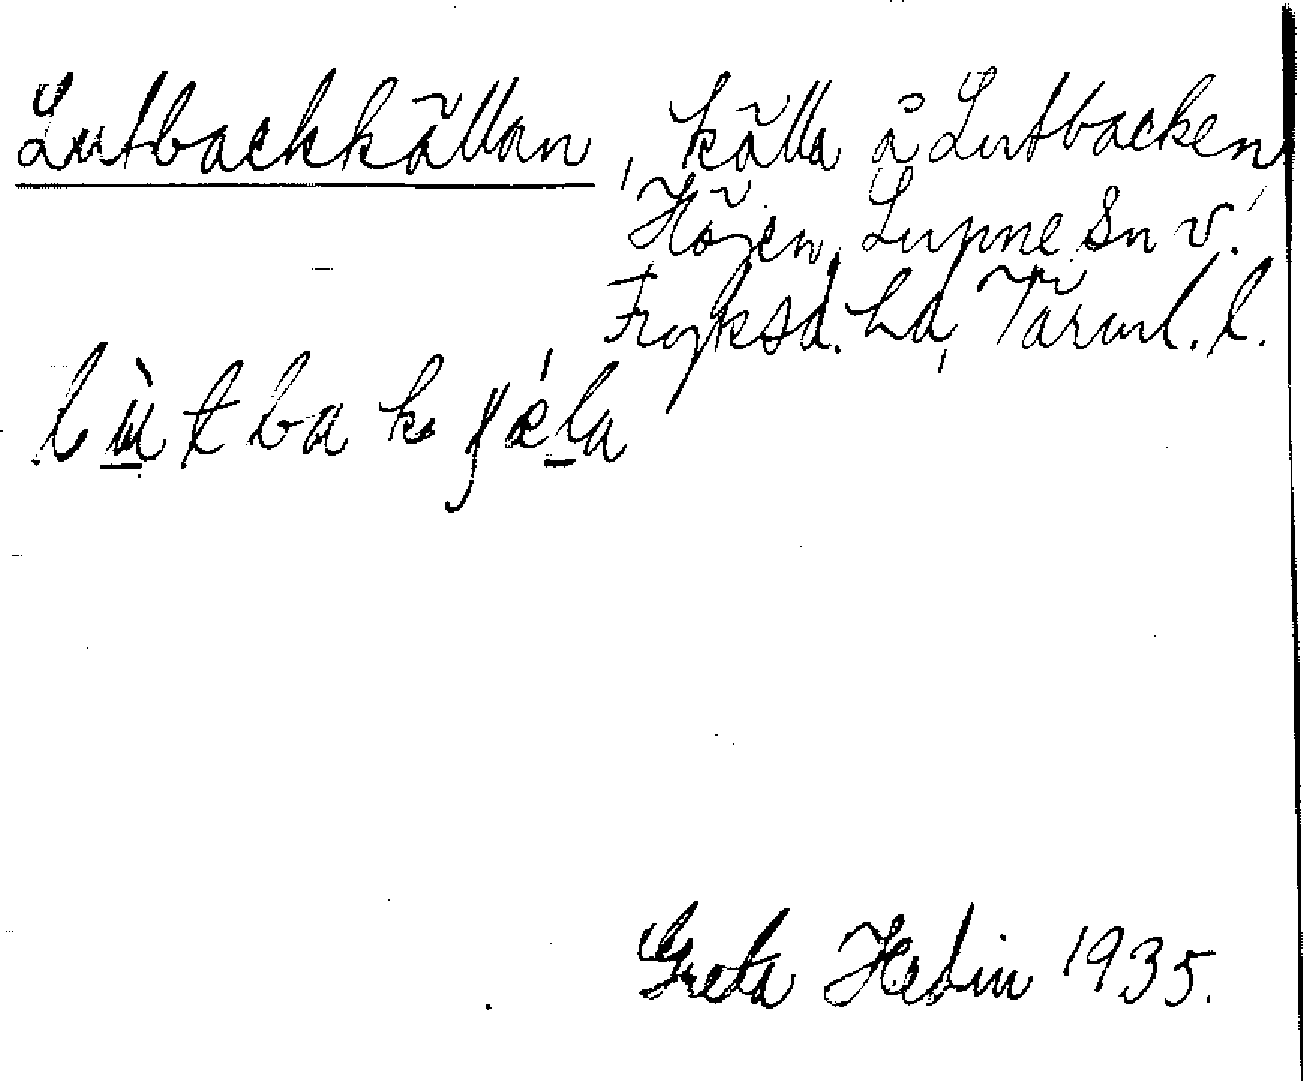 Lutbackkällan, källa å Lutbacken,
Höjen, Lysne Sn V.
Fryksd. hd, Värml. l.
lùtbakȷǽla
Greta Hedin 1935.